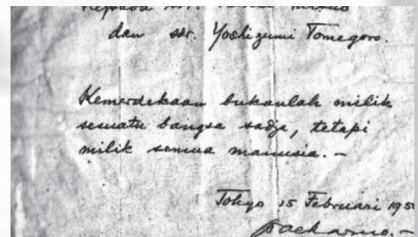 Kepada sdr.
dan sdr. Yoshizumi Tomegoro.
Kemerdekaan bukanlah milik
sesuatu bangsa sadja, tetapi
milik semua manusia. –
Tokyo 15 Februari 195
Soekarno. –